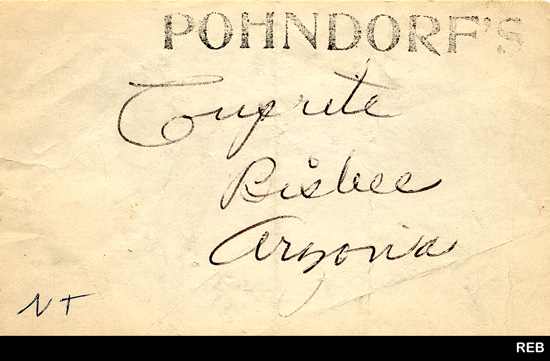 POHNDORF'S
Cuprite
Bisbee
Arizona
NT
REB